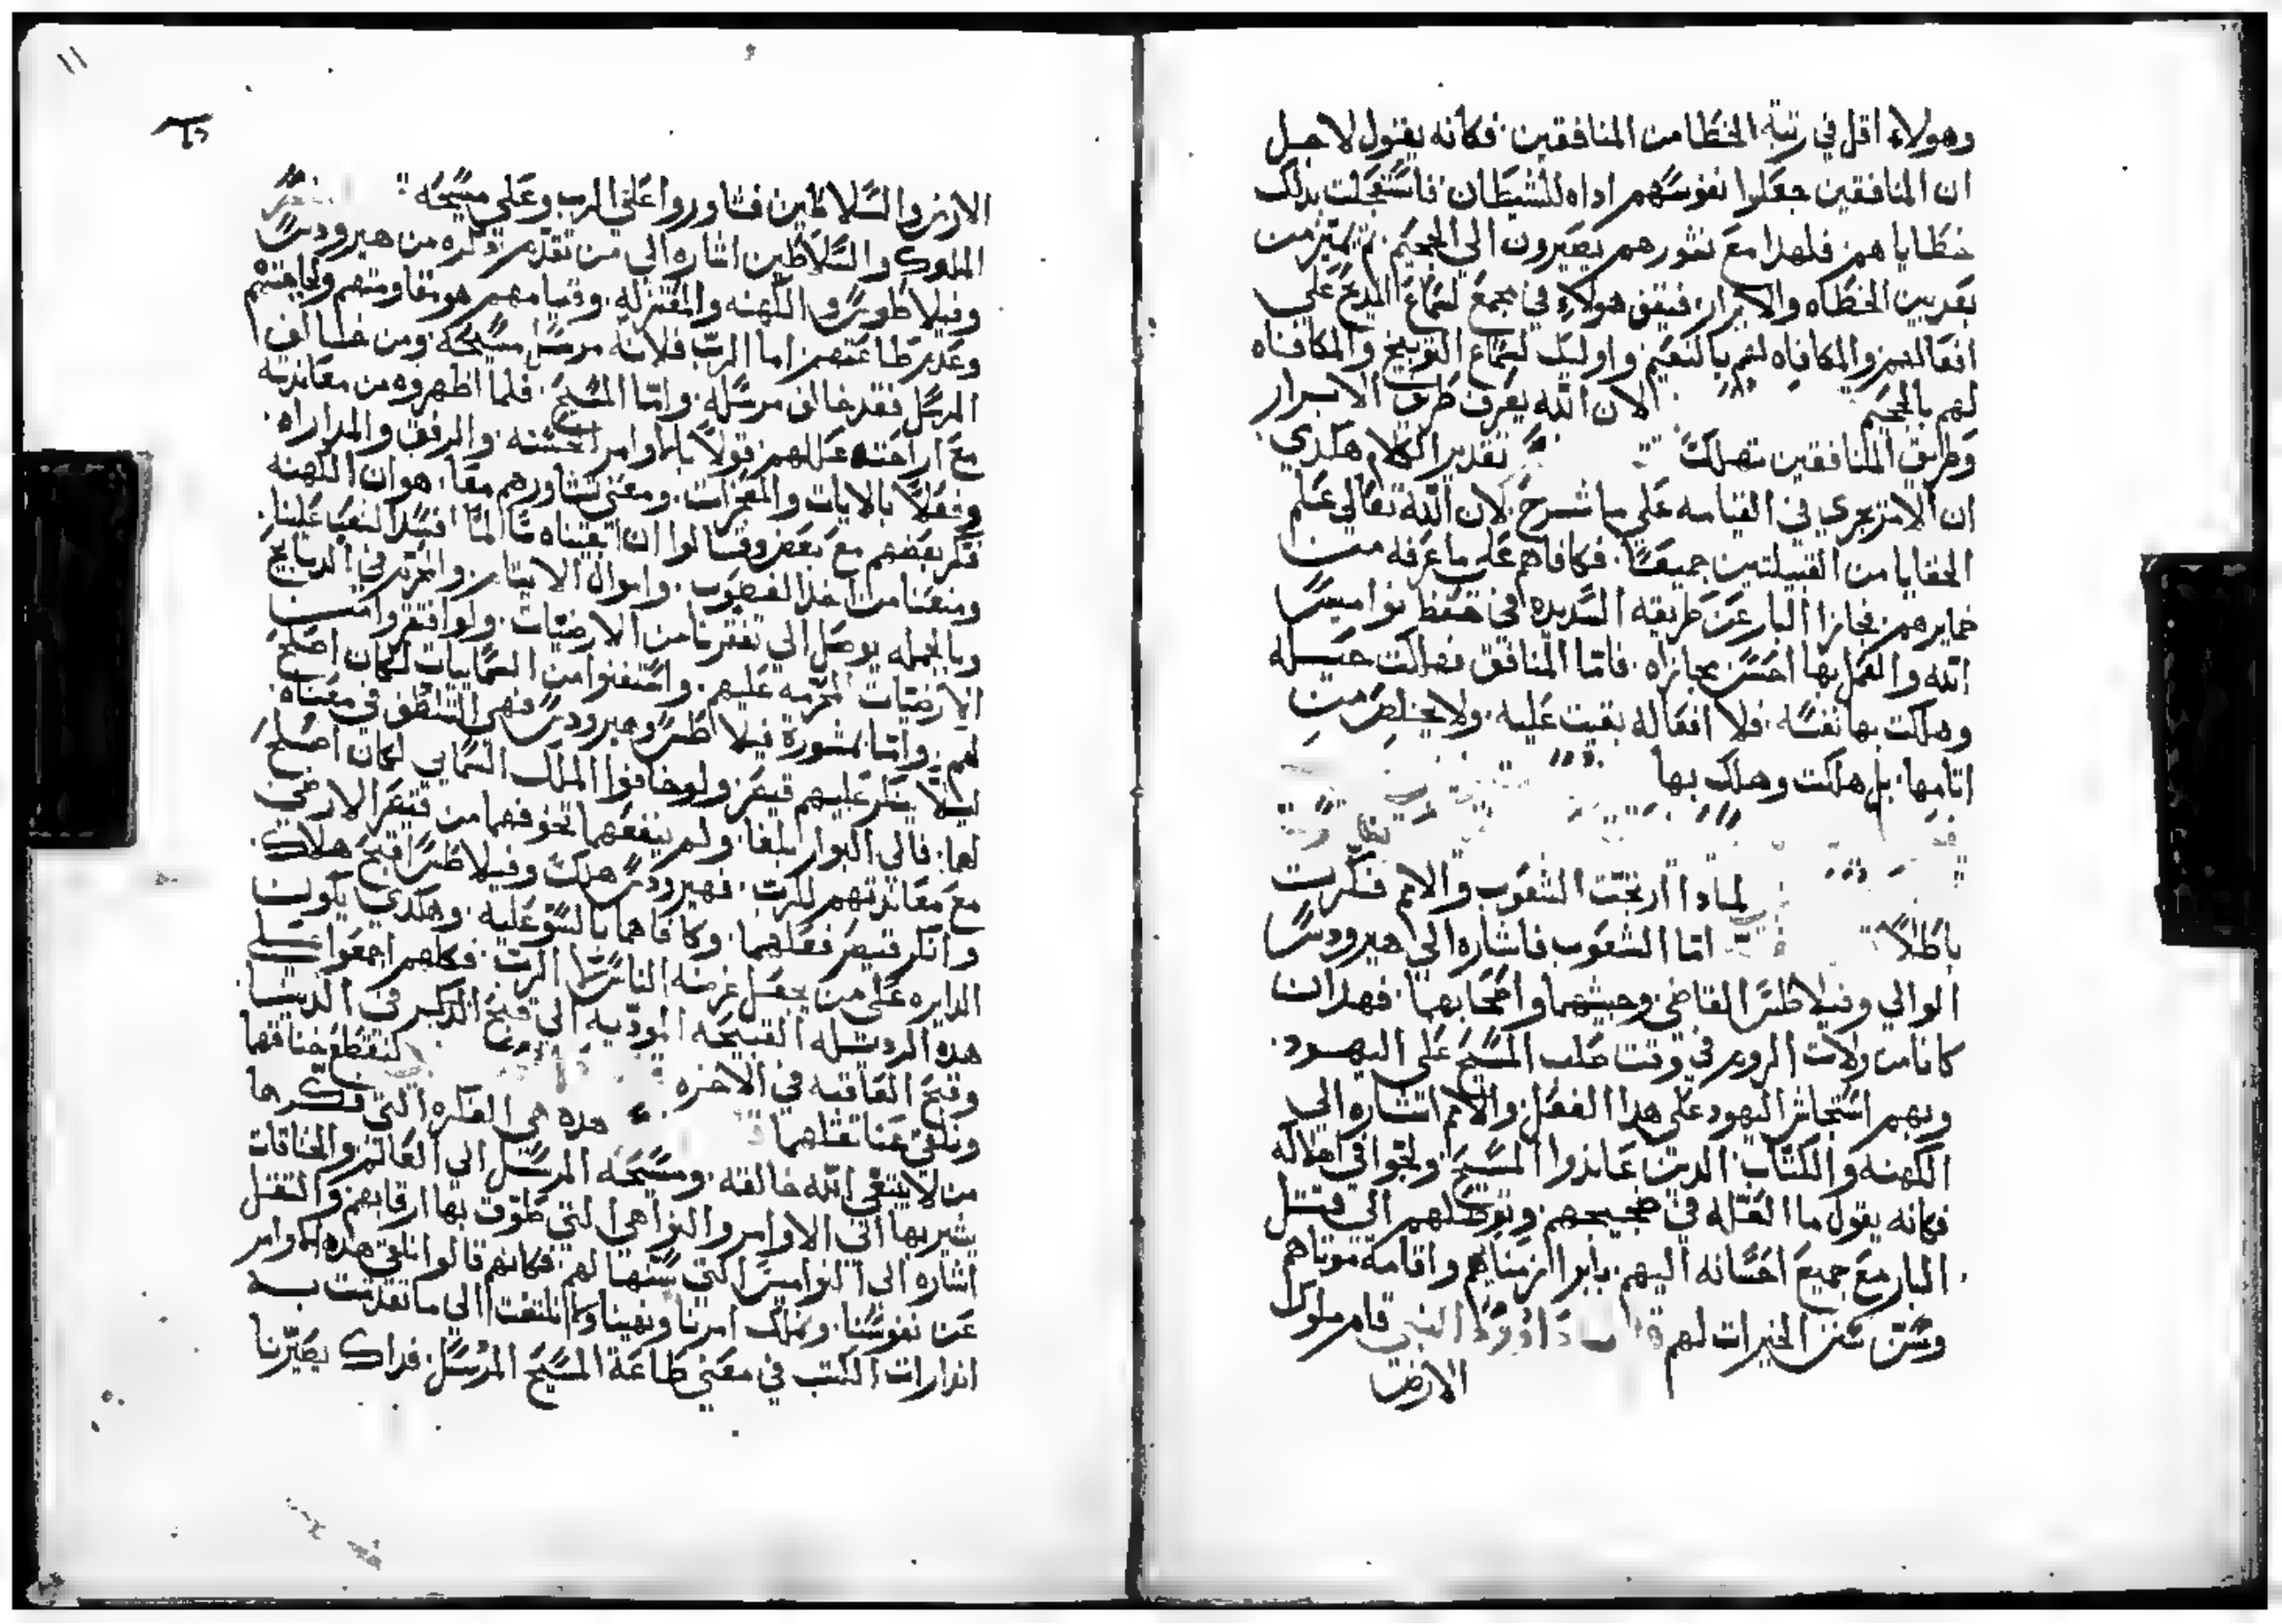 وهولاء اقل في رتبة الخطا من المنافقين. فكانه يقول لاجل
ان المنافقين جعلوا نفوسهم اداه للشيطان. فاستعجلت بذلك
خطاياهم. فلهذا مع نشورهم يصيرون الي الجحيم.
الخطاه والابرار. فيقف هولاء في مجمع لسماع المدح علي
افعالهم والمكافاه لهم بالنعيم. واوليك لسماع التوبيخ والمكافاه
لهم بالجحيم لان الله يعرف طريق الابرار
وطريق المنافقين تهلك تقدير الكلام هكدي
ان الامر يجري في القيامه علي ما شرح. لان الله تعالي علم
الخفايا من القبيلتين جميعا. فكافاهم علي ما عرفه من
ضمايرهم. فجازا البار عن طريقه السديده في حفظ نواميس
الله والعمل بها احسن مجازاه. فاما المنافق فهلكت حيله
وهلكت بها نفسه. فلا افعاله بقيت عليه. ولا يخلص من
اتامها. بل هلكت وهلك بها
لمادا ارتجت الشعوب والامم فكرت
باطلا اما الشعوب فاشاره الي هيرودس
الوالي وفيلاطس القاضي وجيشهما واصحابهما. فهدان
كانا من ولات الروم في وقت صلب المسيح علي اليهود.
وبهم استجاش اليهود علي هدا الفعل. والامم اشاره الي
الكهنه والكتاب. الدين عاندوا المسيح. ولجوا في اهلاكه
فكانه يقول ما العله في ضجيجهم وتوصلهم الي قتل
البار مع جميع احسانه اليهم. بابرا زمناهم واقامة موتاهم
وسن سنن الخيرات لهم قال داوود النبي قام ملوك
الارض
١١
الارض والسلاطين فتاوروا علي الرب وعلي مسيحه
الملوك والسلاطين اشاره الي من تقدم دكره من هيرودس
وفيلاطوس والكهنه والمعتزله. وقيامهم هو مقاومتهم ولجاجتهم
وعدم طاعتهم اما الرب فلانه مرسل مسيحه. ومن خالف
المرسل فقد خالف مرسله. واما المسيح. فلما اظهروه من معاندته
مع ازاحته عللهم قولا بالاوامر الحسنه. والرفق والمداراه.
وفعلا بالايات والمعجزات. ومعني تشاورهم معا. هو ان الكهنه
فكر بعضهم مع بعض وقالوا ان
ومنعنا من اخد الغصوب. واموال الايتام.
وبالجمله يوصل الي تفقرنا من الارضيات. ولو افتقروا من
الارضيات المحرمه عليهم. واستغنوا من السماييات لكان اصلح
لهم. واما مشورة فيلاطس وهيرودس فهي التلطف في معناه.
ليلا ينكر عليهم قيصر. ولو خافوا الملك السمايي لكان اصلح
لهما. فالي البوار بلغا. ولم ينفعهما تخوفهما من قيصر الارضي
مع معاندتهم للرب. فهيرودس هلك وفيلاطس اقبح هلاك.
وانكر قيصر فعلهما. وكافاهما بالسو عليه. وهكدي يكون
الدايره علي من يجعل غرضه الناس لا الرب. فكلهم اجمعوا علي
هده الرديله القبيحه الموديه الي قبح الدكر في الدنيا
وقبح العاقبه في الاخره لنقطع خناقهما
ونلقي عنا تقلهما هده هي الفكره التي فكرها
من لا يتقي الله خالقه. ومسيحه المرسل الي العالم. والخناقات
يشير بها الي الاوامر والنواهي التي طوق بها ارقابهم. والتقل
اشاره الي النواميس التي سنها لهم. فكانهم قالوا نلقي هده الاوامر
عن نفوسنا. ونملك امرنا ونهينا ولا نلتفت الي ما تقدمت به
اندارات الكتب في معني طاعة المسيح المرسل. فداك يصيرنا